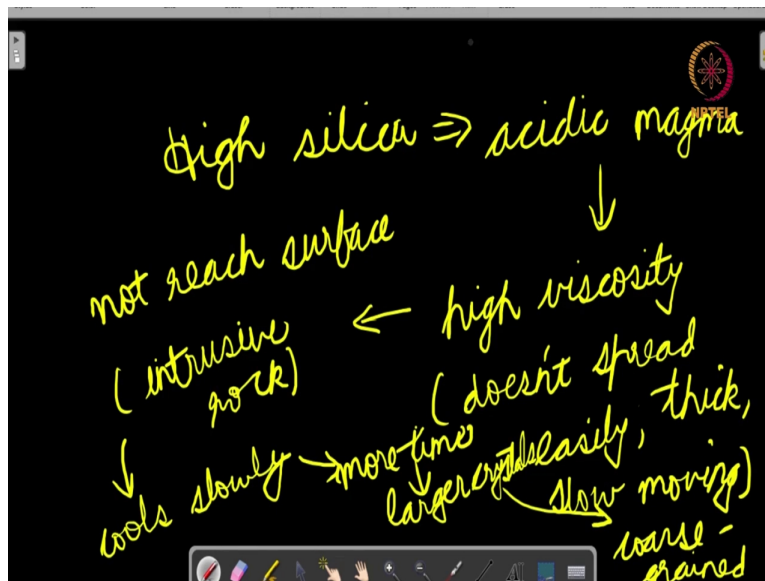 NPTEL
High silica ⇒ acidic magma
↓
not reach surface ← high viscosity
(intrusive rock)
(doesn't spread easily, thick, slow moving)
↓
cools slowly → more time
↓
larger crystals → coarse-grained